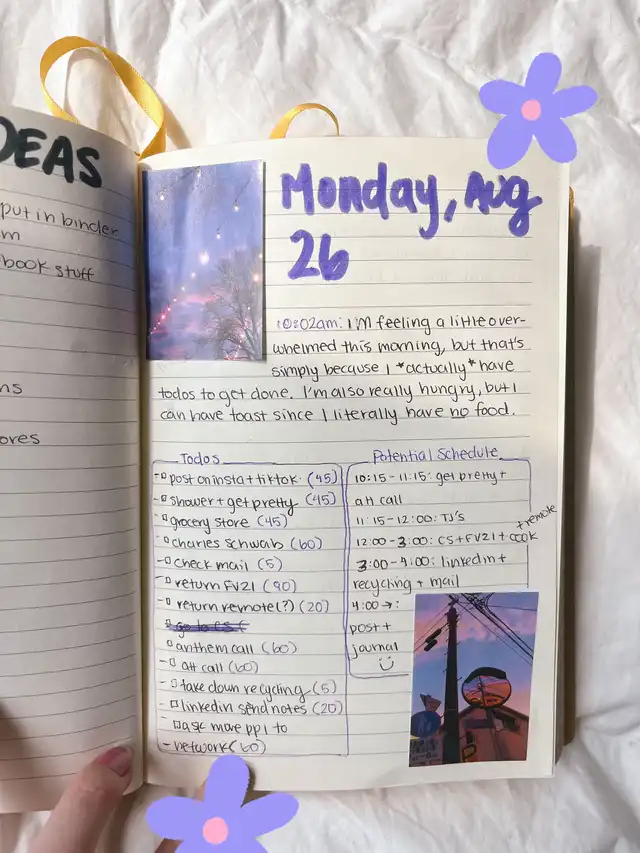 DEAS
put in binder
m
book stuff
ns
ores
Monday, Aug
26
10:02am: I'M feeling a little over-
whelmed this morning, but that's
simply because I *actually* have
todos to get done. I'm also really hungry, but I
can have toast since I literally have no food.
Todos
post on insta + tiktok (45)
shower + get pretty (45)
grocery store (45)
charles schwab (60)
check mail (5)
return FV21 (90)
return remote(?) (20)
go to CS (
anthem call (60)
att call (60)
take down recycling (5)
linkedin send notes (20)
ask more ppl to
network (60)
Potential Schedule
10:15 - 11:15: get pretty +
att call
11:15 - 12:00: TJ's
+ remote
12:00 - 3:00: CS + FV21 + cook
3:00 - 4:00: linkedin +
recycling + mail
4:00 →:
post +
journal